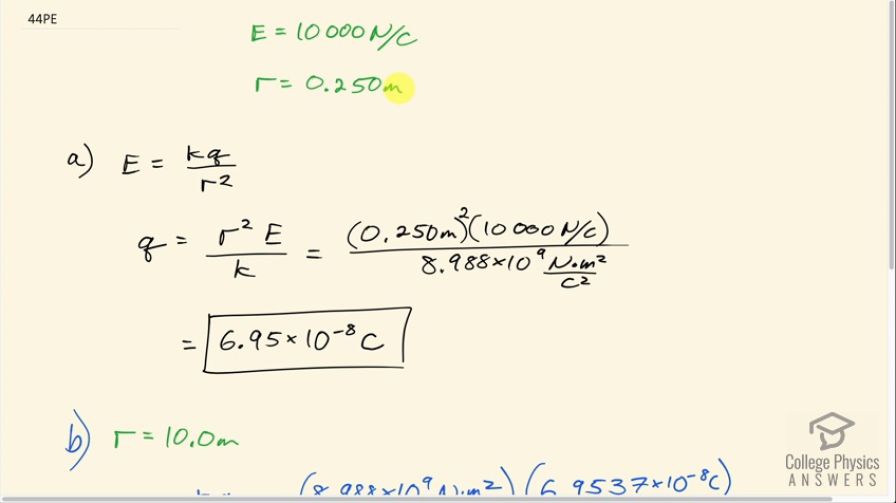 44PE
E = 10 000 N/C
r = 0.250 m
a) E = kq / r²
q = r² E / k = (0.250 m)² (10 000 N/C) / 8.988×10⁹ N·m²/C²
= 6.95×10⁻⁸ C
b) r = 10.0 m
(8.988×10⁹ N·m²) (6.9537×10⁻⁸ C)
College Physics
ANSWERS